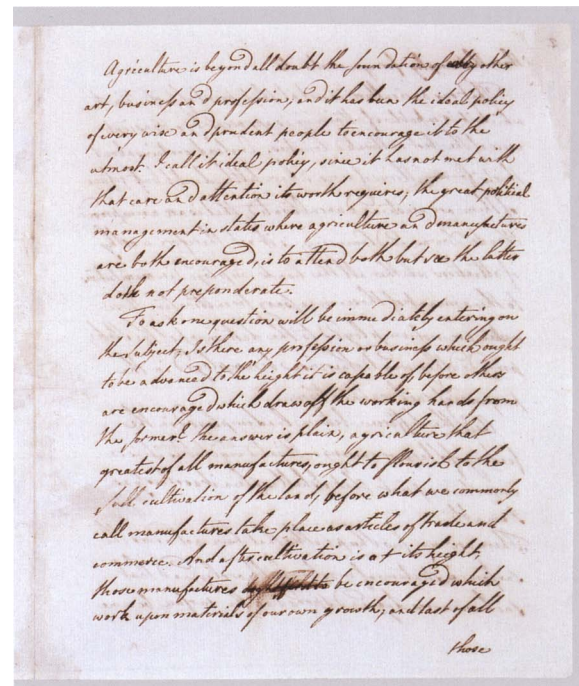 Agriculture is beyond all doubt the foundation of every other
art, business and profession, and it has been the ideal policy
of every wise and prudent people to encourage it to the
utmost. I call it ideal policy, since it has not met with
that care and attention its worth requires; the great political
management in states where agriculture and manufactures
are both encouraged, is to attend both but see the latter
doth not preponderate.
To ask one question will be immediately entering on
the subject; Is there any profession or business which ought
to be advanced to the height it is capable of, before others
are encouraged which draw off the working hands from
the former? the answer is plain, agriculture that
greatest of all manufactures, ought to flourish to the
full cultivation of the land, before what we commonly
call manufactures take place as articles of trade and
commerce. And after cultivation is at its height,
those manufactures be encouraged which
work upon materials of our own growth, and last of all
those